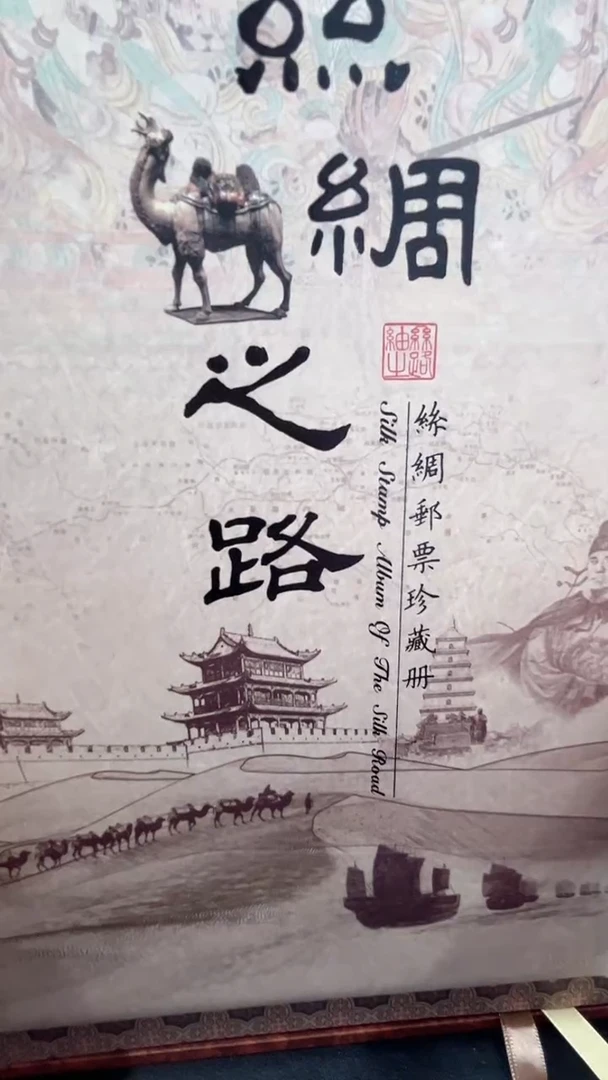 絲
綢
之
路
絲綢郵票珍藏冊
Silk Stamp Album Of The Silk Road